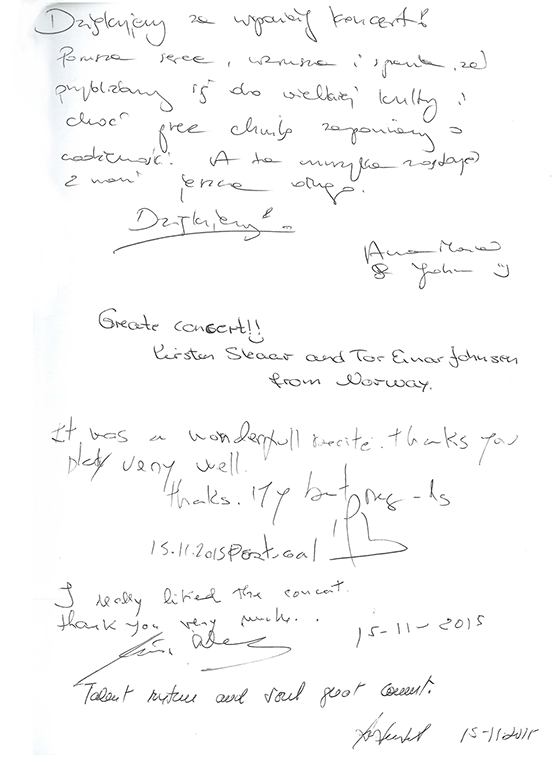 Dziękujemy za wspaniały koncert!
Porusza serce, wzrusza i sprawia, że
przybliżamy się do wielkiej kultury i
choć przez chwilę zapominamy o
codzienności. A ta muzyka zostaje
z nami jeszcze długo.
Dziękujemy!
Anna Maria
&
Greate concert!!
Kirsten Skaar and Tor Einar Johnsen
from Norway.
It was a wonderfull recite. thanks you
play very well.
thaks. My
15.11.2015 Portugal
I really liked the concert.
thank you very much..
15-11-2015
Talent mixture and soul great concert.
15-11-2015